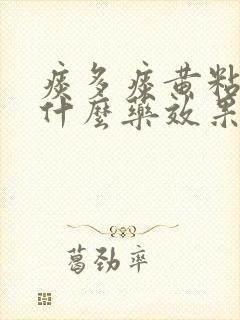 痰多痰黄粘
什麼藥效果
葛劲率